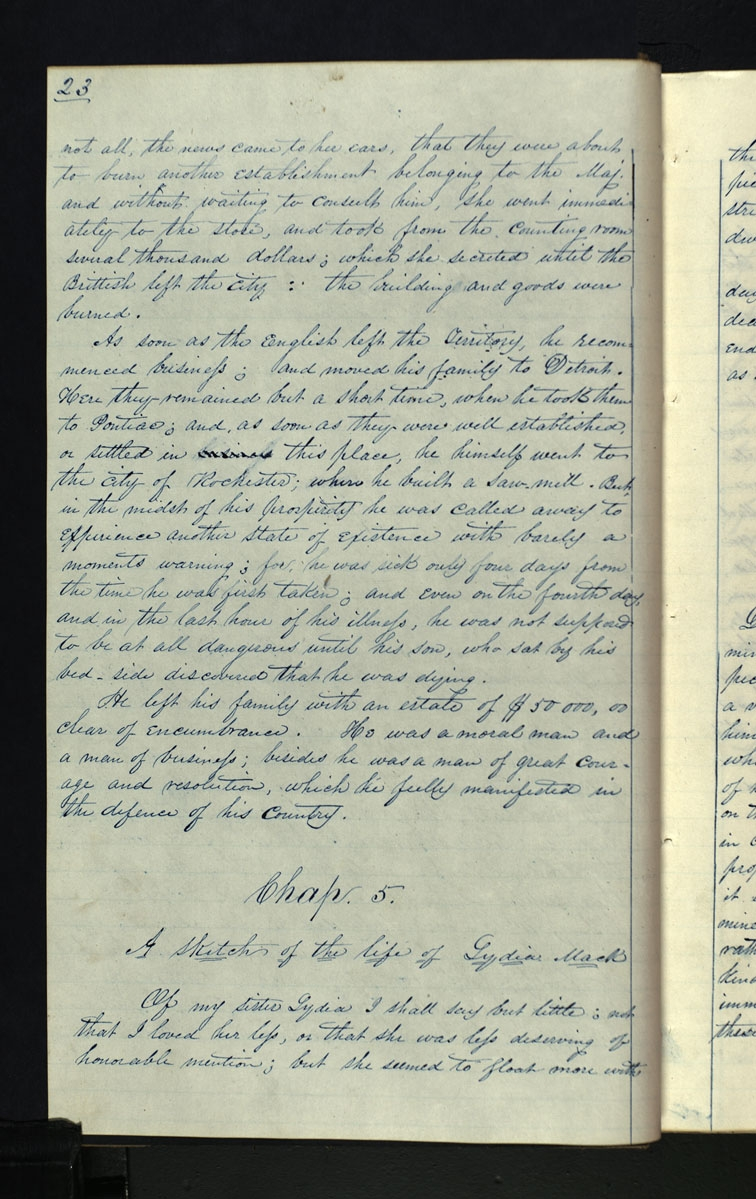 23
not all, the news came to her ears, that they were about
to burn another establishment belonging to the Maj.
and without waiting to consult him, she went immedi
ately to the store, and took from the counting room
several thousand dollars; which she secreted until the
Brittish left the city : the building and goods were
burned.
As soon as the English left the Territory, he recom-
menced business; and moved his family to Detroit.
Here they remained but a short time, when he took them
to Pontiac; and, as soon as they were well established,
or settled in this place, he himself went to
the city of Rochester; where he built a saw-mill. But,
in the midst of his prosperity he was called away to
experience another state of existence with barely a
moments warning; for, he was sick only four days from
the time he was first taken; and even on the fourth day,
and in the last hour of his illness, he was not supposed
to be at all dangerous until his son, who sat by his
bed-side discovered that he was dying.
He left his family with an estate of $50000,00
clear of encumbrance. He was a moral man and
a man of business; besides he was a man of great cour-
age and resolution, which he fully manifested in
the defence of his country.
Chap. 5.
A sketch of the life of Lydia Mack
Of my sister Lydia I shall say but little; not
that I loved her less, or that she was less deserving of
honorable mention; but she seemed to float more with
th
pi
str
du
day
dec
end
as
min
pec
a v
him
wh
of
on t
in c
pro
it
mine
rath
kind
imm
these